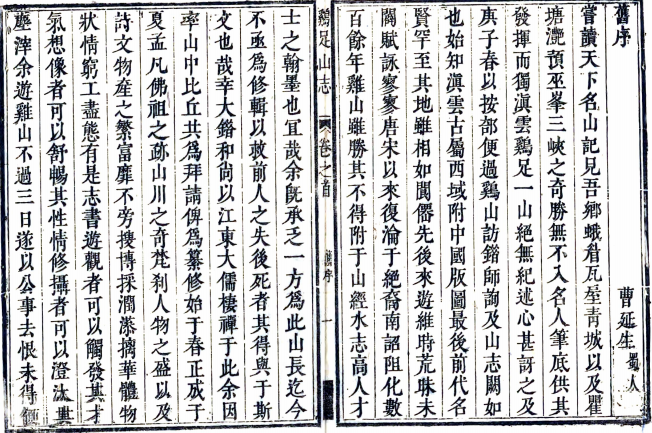 舊序
曹延生蜀人
嘗讀天下名山記見吾鄉蛾眉瓦屋青城以及瞿
塘灔預巫峯三峽之奇勝無不入名人筆底供其
發揮而獨滇雲鷄足一山絕無紀述心甚訝之及
庚子春以按部便過鷄山訪鎔師詢及山志闕如
也始知滇雲古屬西域附中國版圖最後前代名
賢罕至其地雖相如開僰先後來遊維時荒昧未
闢賦詠寥寥唐宋以來復淪于絕裔南詔阻化數
百餘年雞山雖勝其不得附于山經水志高人才
鷄足山志
卷之首
舊序
一
士之翰墨也宜哉余旣承乏一方爲此山長迄今
不亟爲修輯以救前人之失後死者其得與于斯
文也哉幸大錯和尚以江東大儒棲禪于此余因
率山中比丘共爲拜請俾爲纂修始于春正成于
夏孟凡佛祖之跡山川之奇梵刹人物之盛以及
詩文物產之繁富靡不旁搜博採潤漆摛華體物
狀情窮工盡態有是志書遊觀者可以觸發其才
氣想像者可以舒暢其性情修攝者可以澄汰其
塵滓余遊雞山不過三日遂以公事去恨未得價